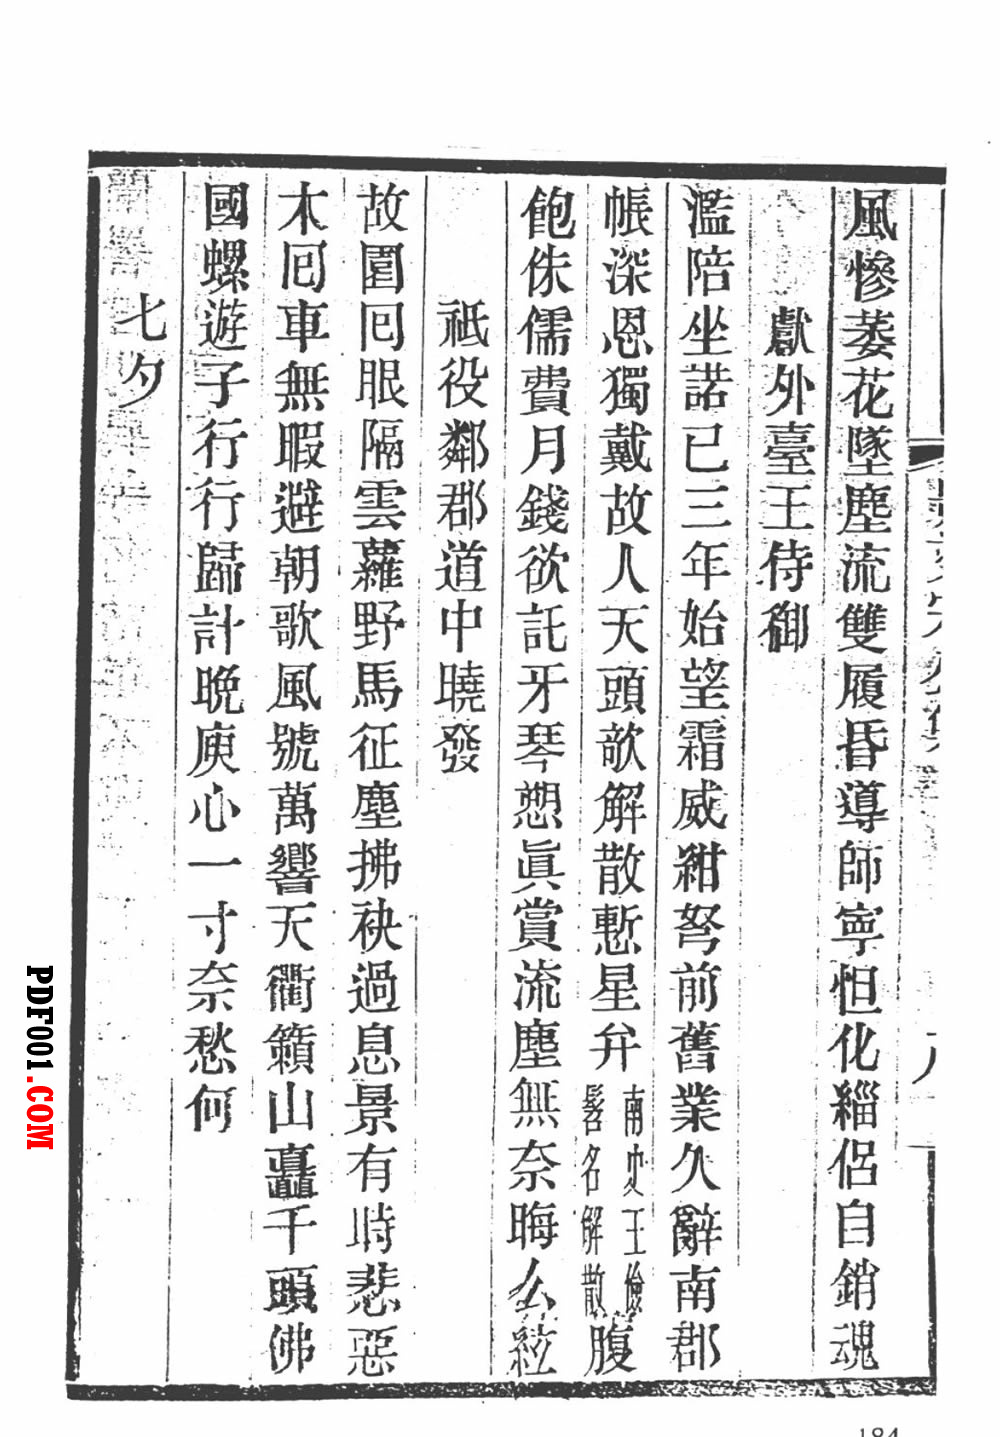 風慘萎花墜塵流雙履昏導師寧怛化緇侶自銷魂
獻外臺王侍御
濫陪坐諾已三年始望霜威紺弩前舊業久辭南郡
帳深恩獨戴故人天頭欹解散慙星弁南史王儉髻名解散腹
飽侏儒費月錢欲託牙琴愬真賞流塵無奈晦么絃
祗役鄰郡道中曉發
故園囘眼隔雲蘿野馬征塵拂袂過息景有時悲惡
木囘車無暇避朝歌風號萬響天衢籟山矗千頭佛
國螺遊子行行歸計晚庾心一寸奈愁何
七夕
184
PDF001.COM